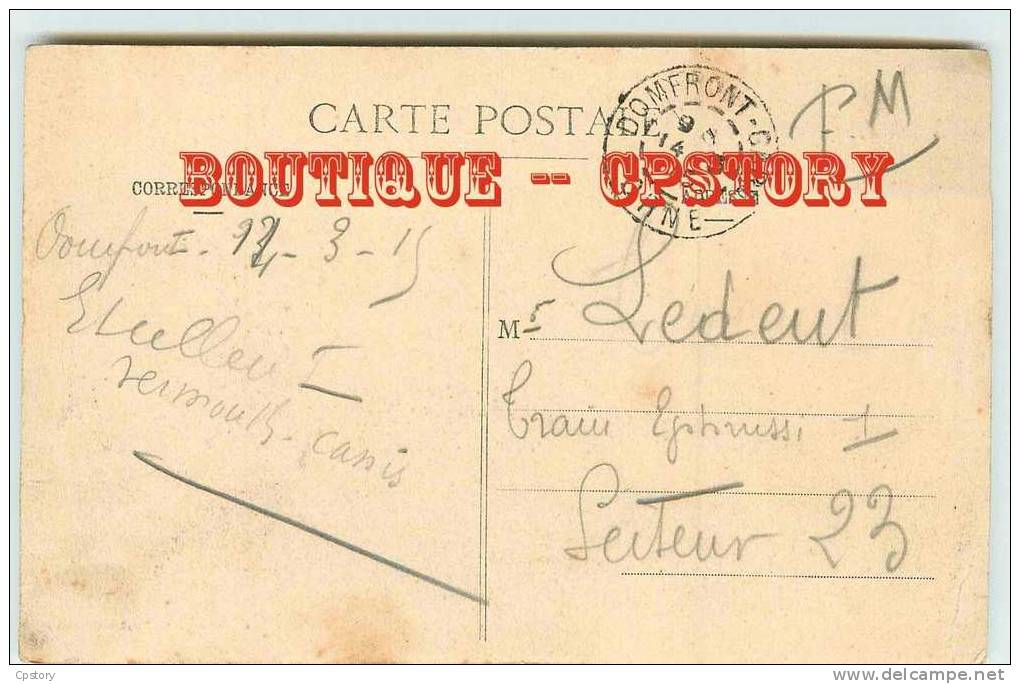 CARTE POSTALE
F.M
DOMFRONT-G
9
14
ORNE
BOUTIQUE -- CPSTORY
CORRESPONDANCE
ADRESSE
Domfront - 12 - 3 - 15
I
vermouth - cassis
Mr Ledent
Train Ephrussi I
Secteur 23
Cpstory
delcampe.net